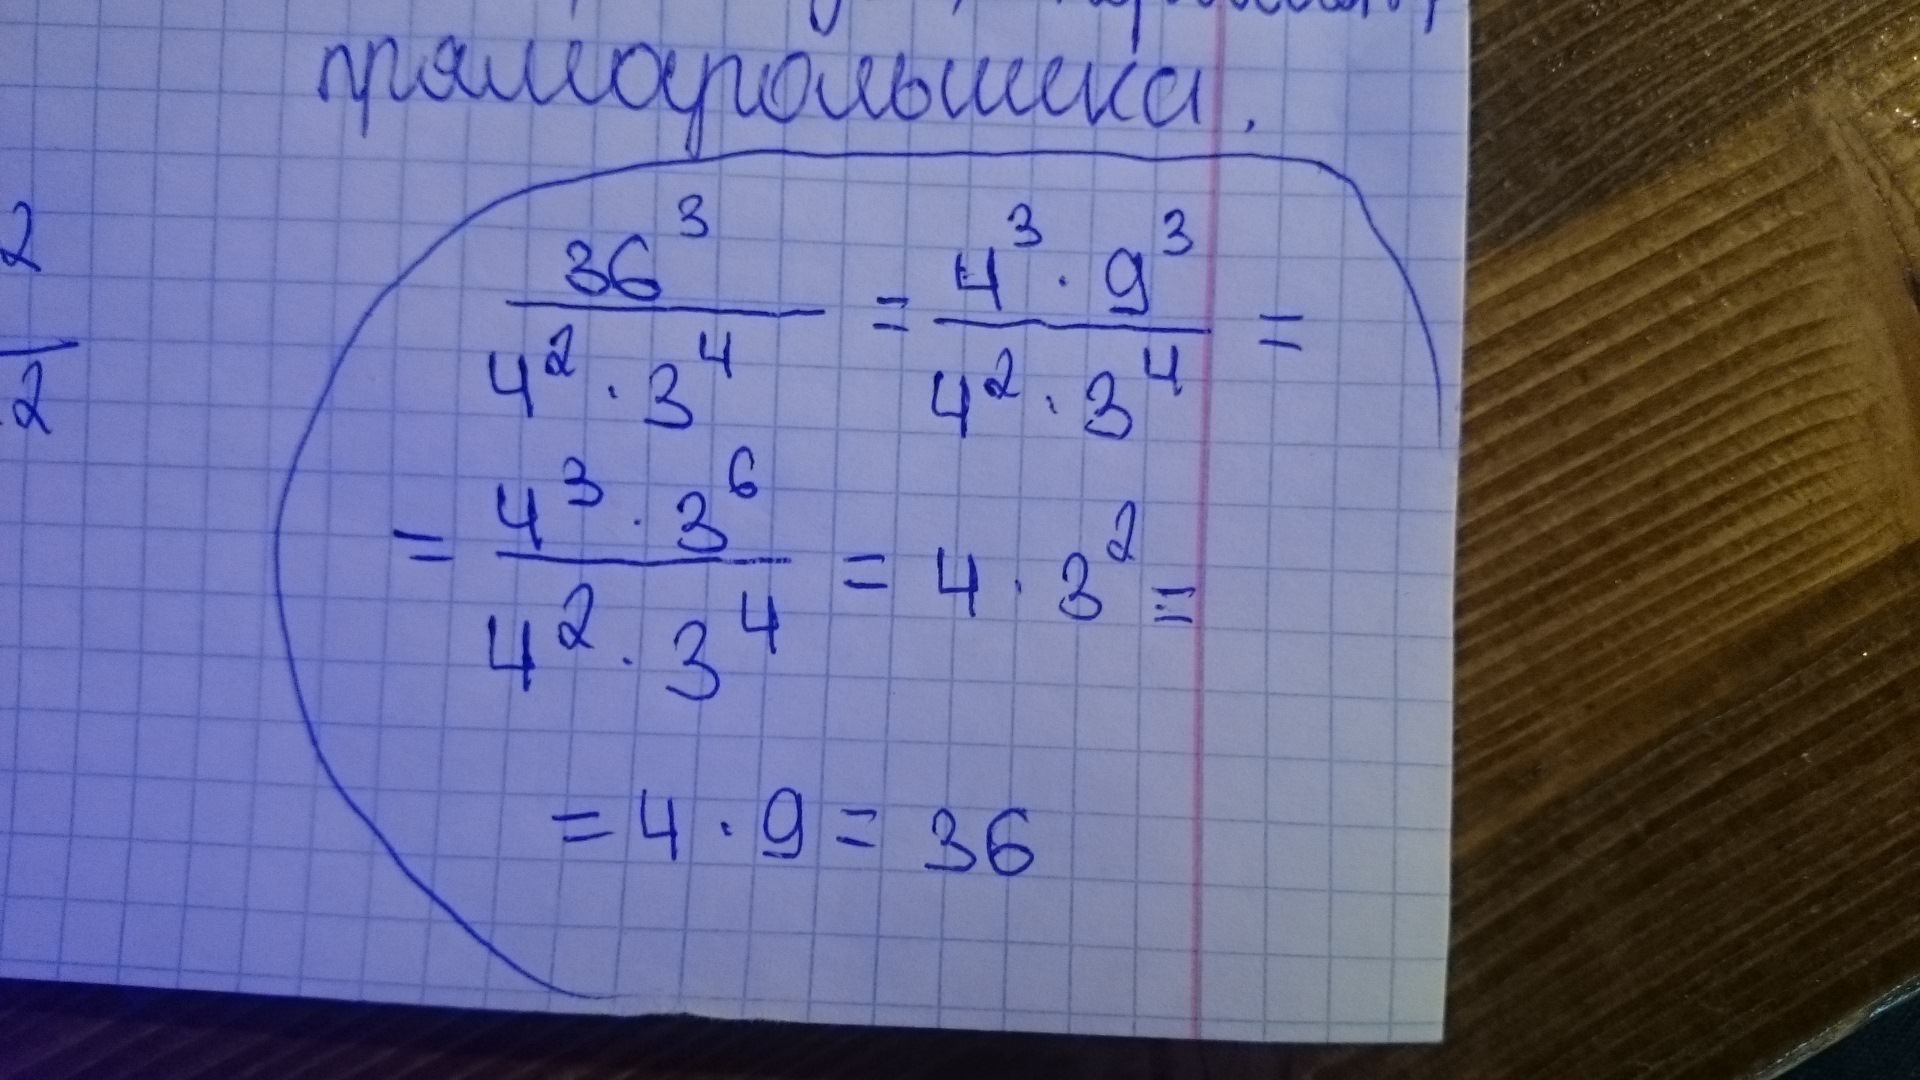 прямоугольника.
2
36³ / 4² · 3⁴ = 4³ · 9³ / 4² · 3⁴ =
2
= 4³ · 3⁶ / 4² · 3⁴ = 4 · 3² =
= 4 · 9 = 36